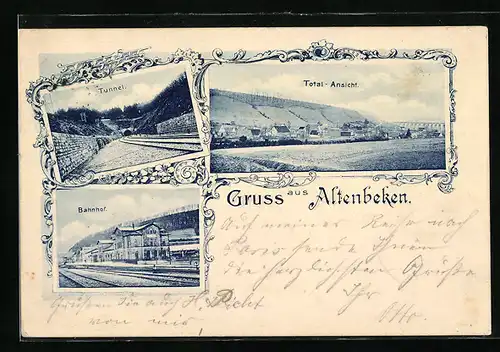 Tunnel.
Total-Ansicht.
Bahnhof.
Gruss aus Altenbeken.
Auf meiner Reise nach
sende Ihnen
die herzlichsten Grüße
Ihr
Otto.
Grüßen Sie auch H.
von mir